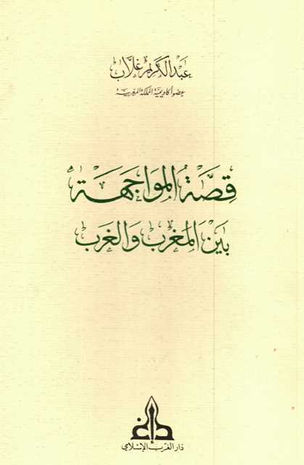 عبد الكريم غلاب
عضو أكاديمية المملكة المغربية
قصة المواجهة
بين المغرب والغرب
دار الغرب الإسلامي